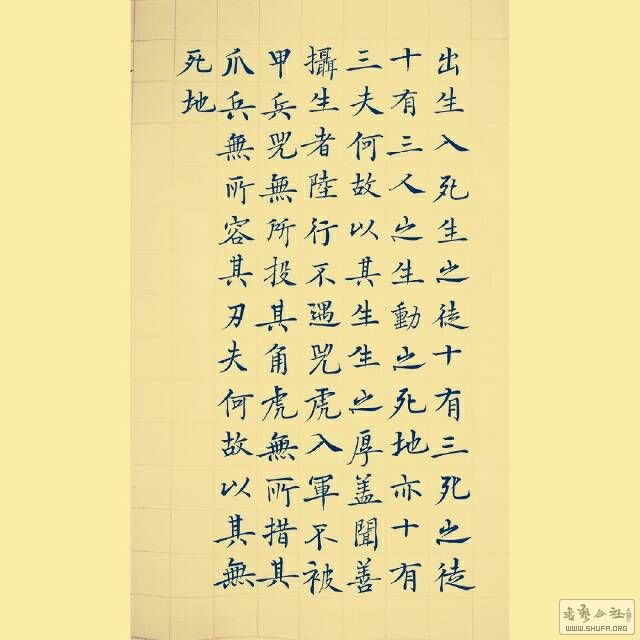 出生入死生之徒十有三死之徒
十有三人之生動之死地亦十有
三夫何故以其生生之厚蓋聞善
攝生者陸行不遇兕虎入軍不被
甲兵兕無所投其角虎無所措其
爪兵無所容其刃夫何故以其無
死地
WWW.SHUFA.ORG